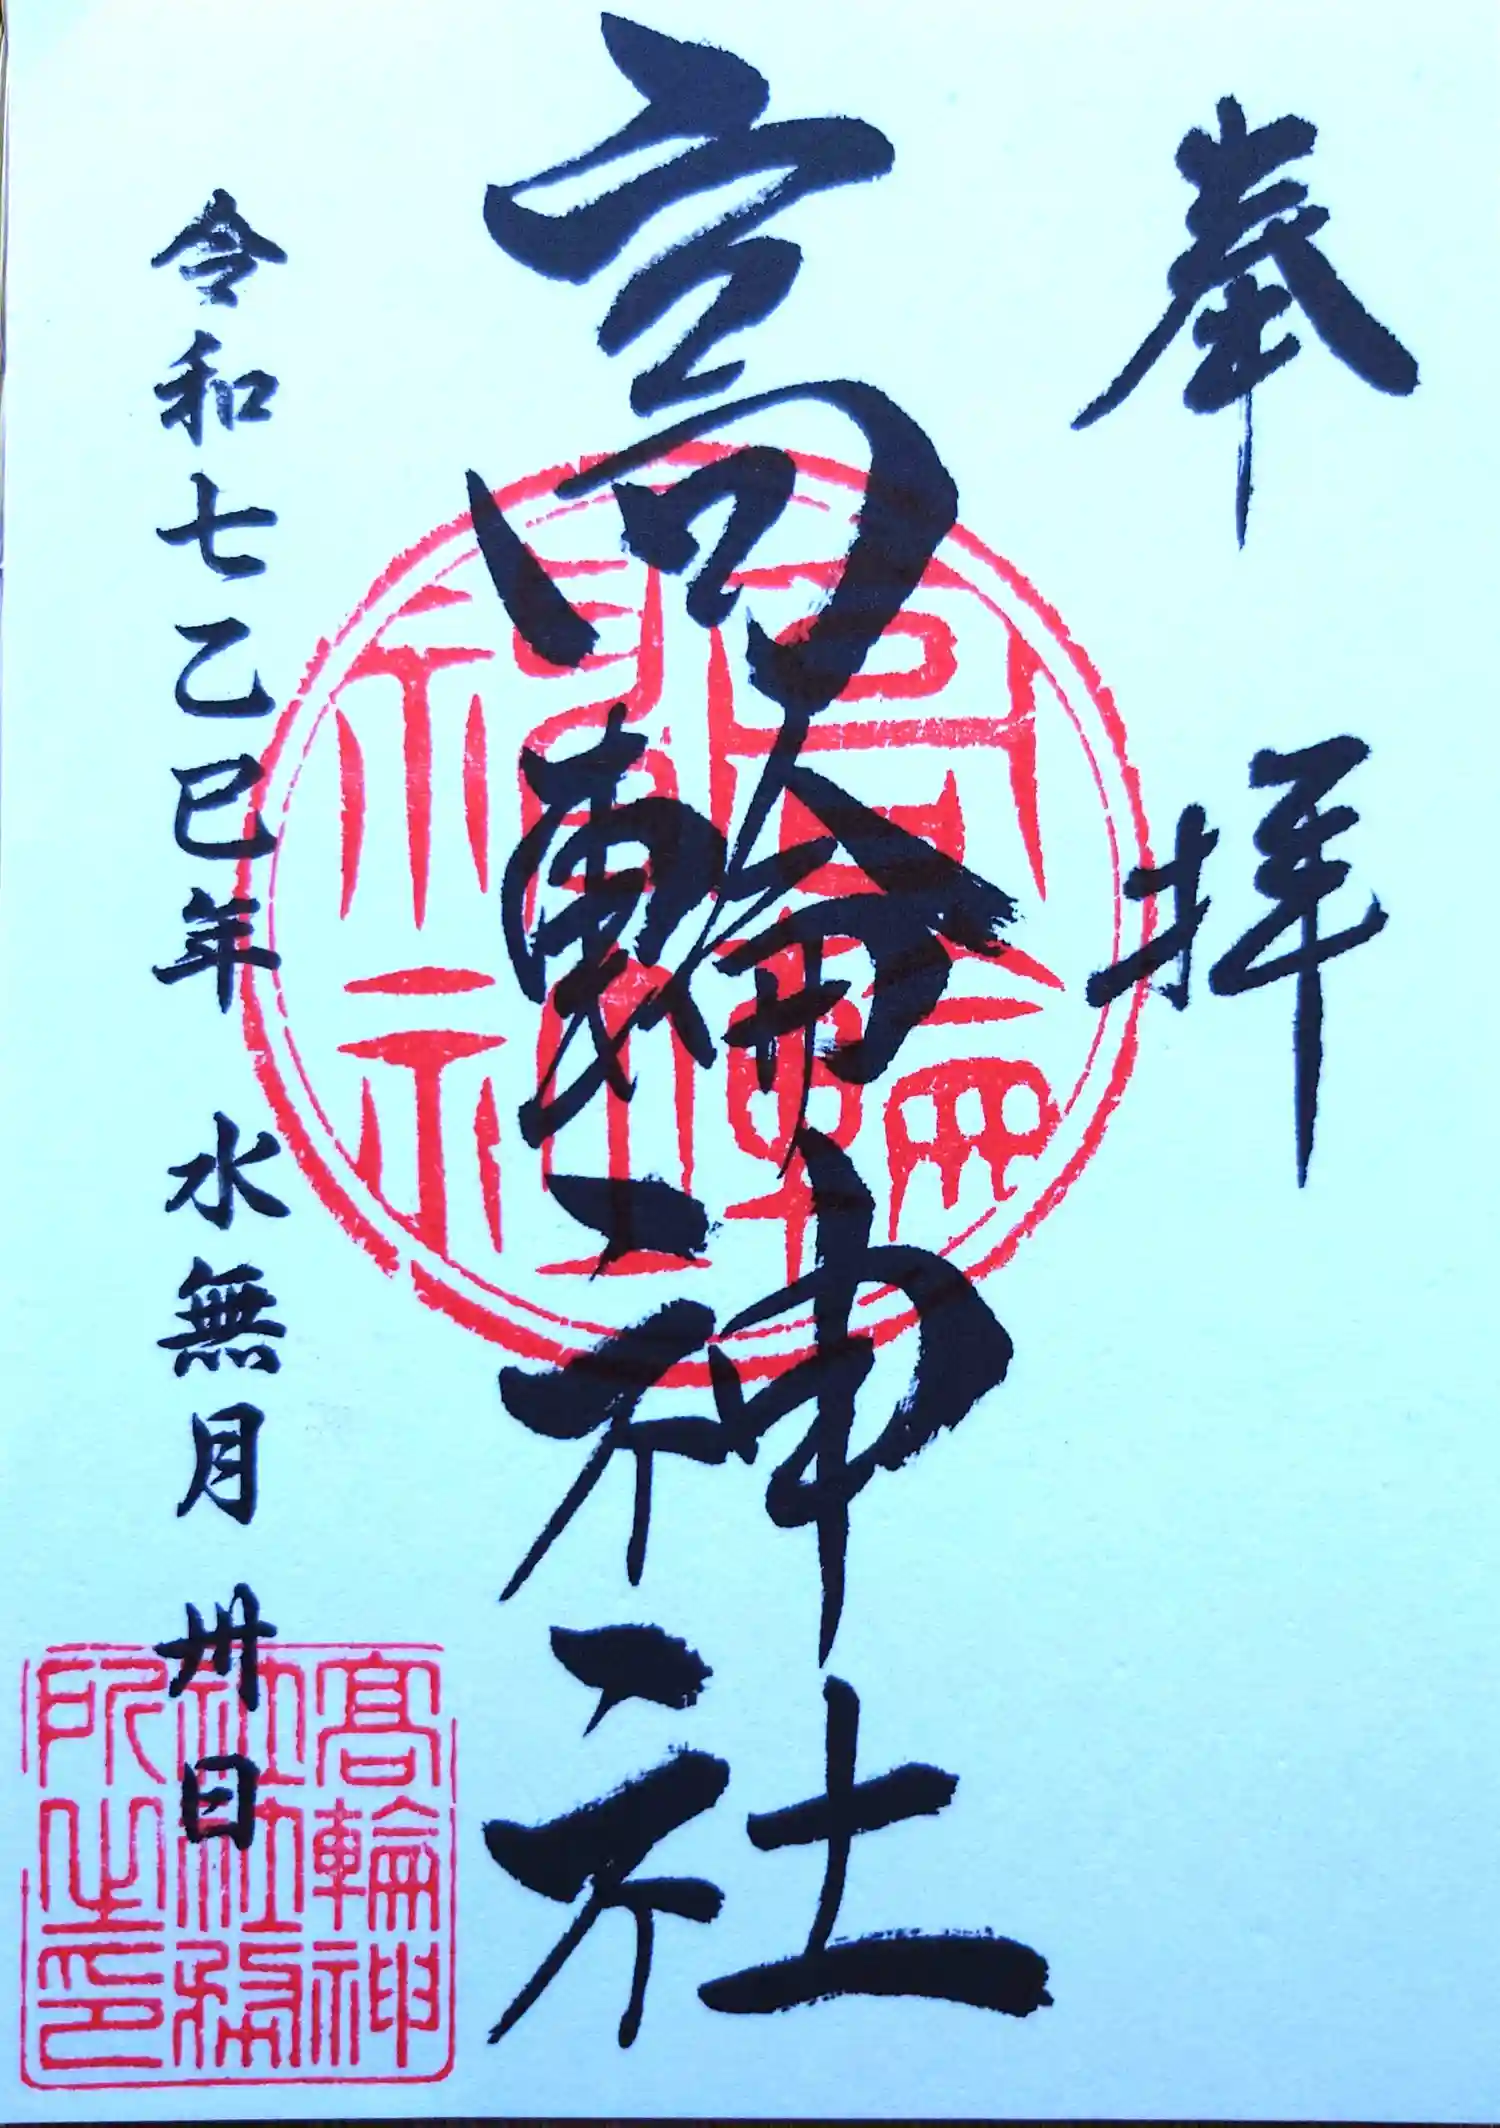 奉拝
高輪神社
令和七乙巳年 水無月 卅日
高輪神社
高輪神社社務所之印